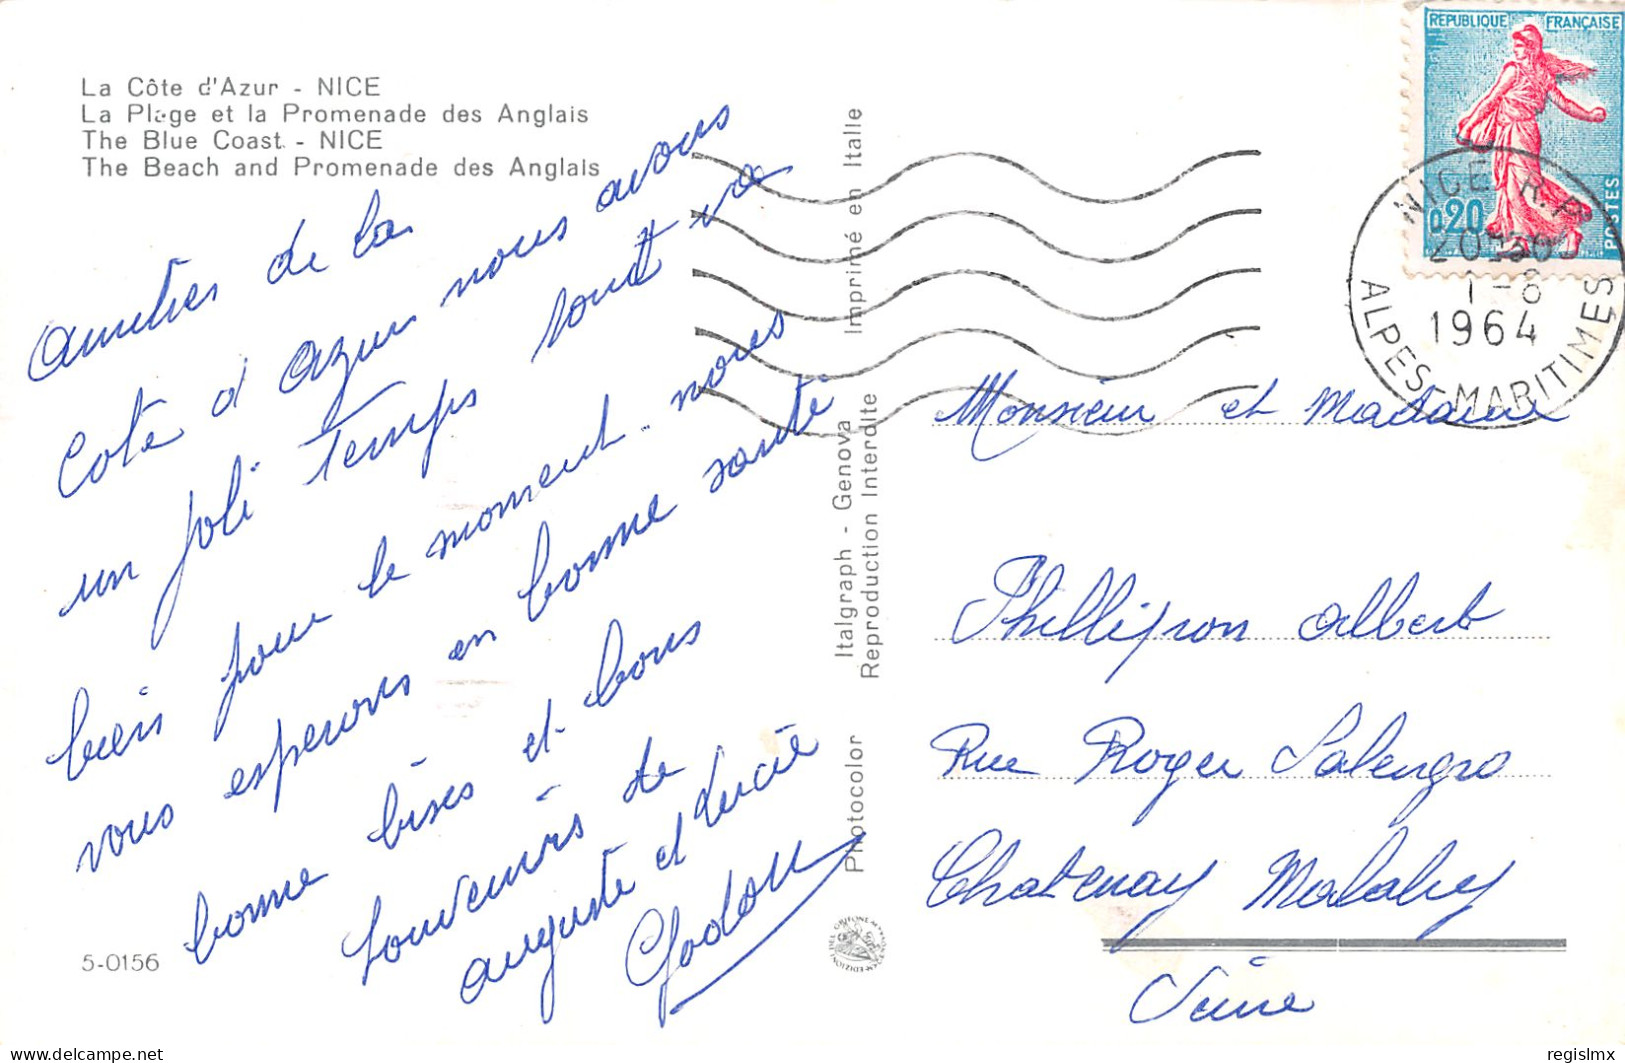 La Côte d'Azur - NICE
La Plage et la Promenade des Anglais
The Blue Coast - NICE
The Beach and Promenade des Anglais
amities de la
Cote d azur nous avons
un joli temps tout va
bien pour le moment. nous
vous esperons en bonne santé
bonne bises et bons
souvenirs de
auguste et Lucie
5-0156
Imprimé en Italie
Italgraph - Genova
Reproduction Interdite
Photocolor
REPUBLIQUE FRANÇAISE
0,20
POSTES
NICE R.P.
1-8
1964
ALPES-MARITIMES
Monsieur et Madame
Phillipon Albert
Rue Roger Salengro
Chatenay Malabry
Seine
delcampe.net
regislmx